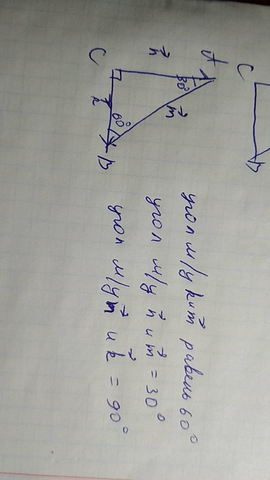 C
A
B
C
B
n⃗
m⃗
k⃗
30°
60°
угол м/у k⃗ и m⃗ равен 60°
угол м/у n⃗ и m⃗ = 30°
угол м/у n⃗ и k⃗ = 90°